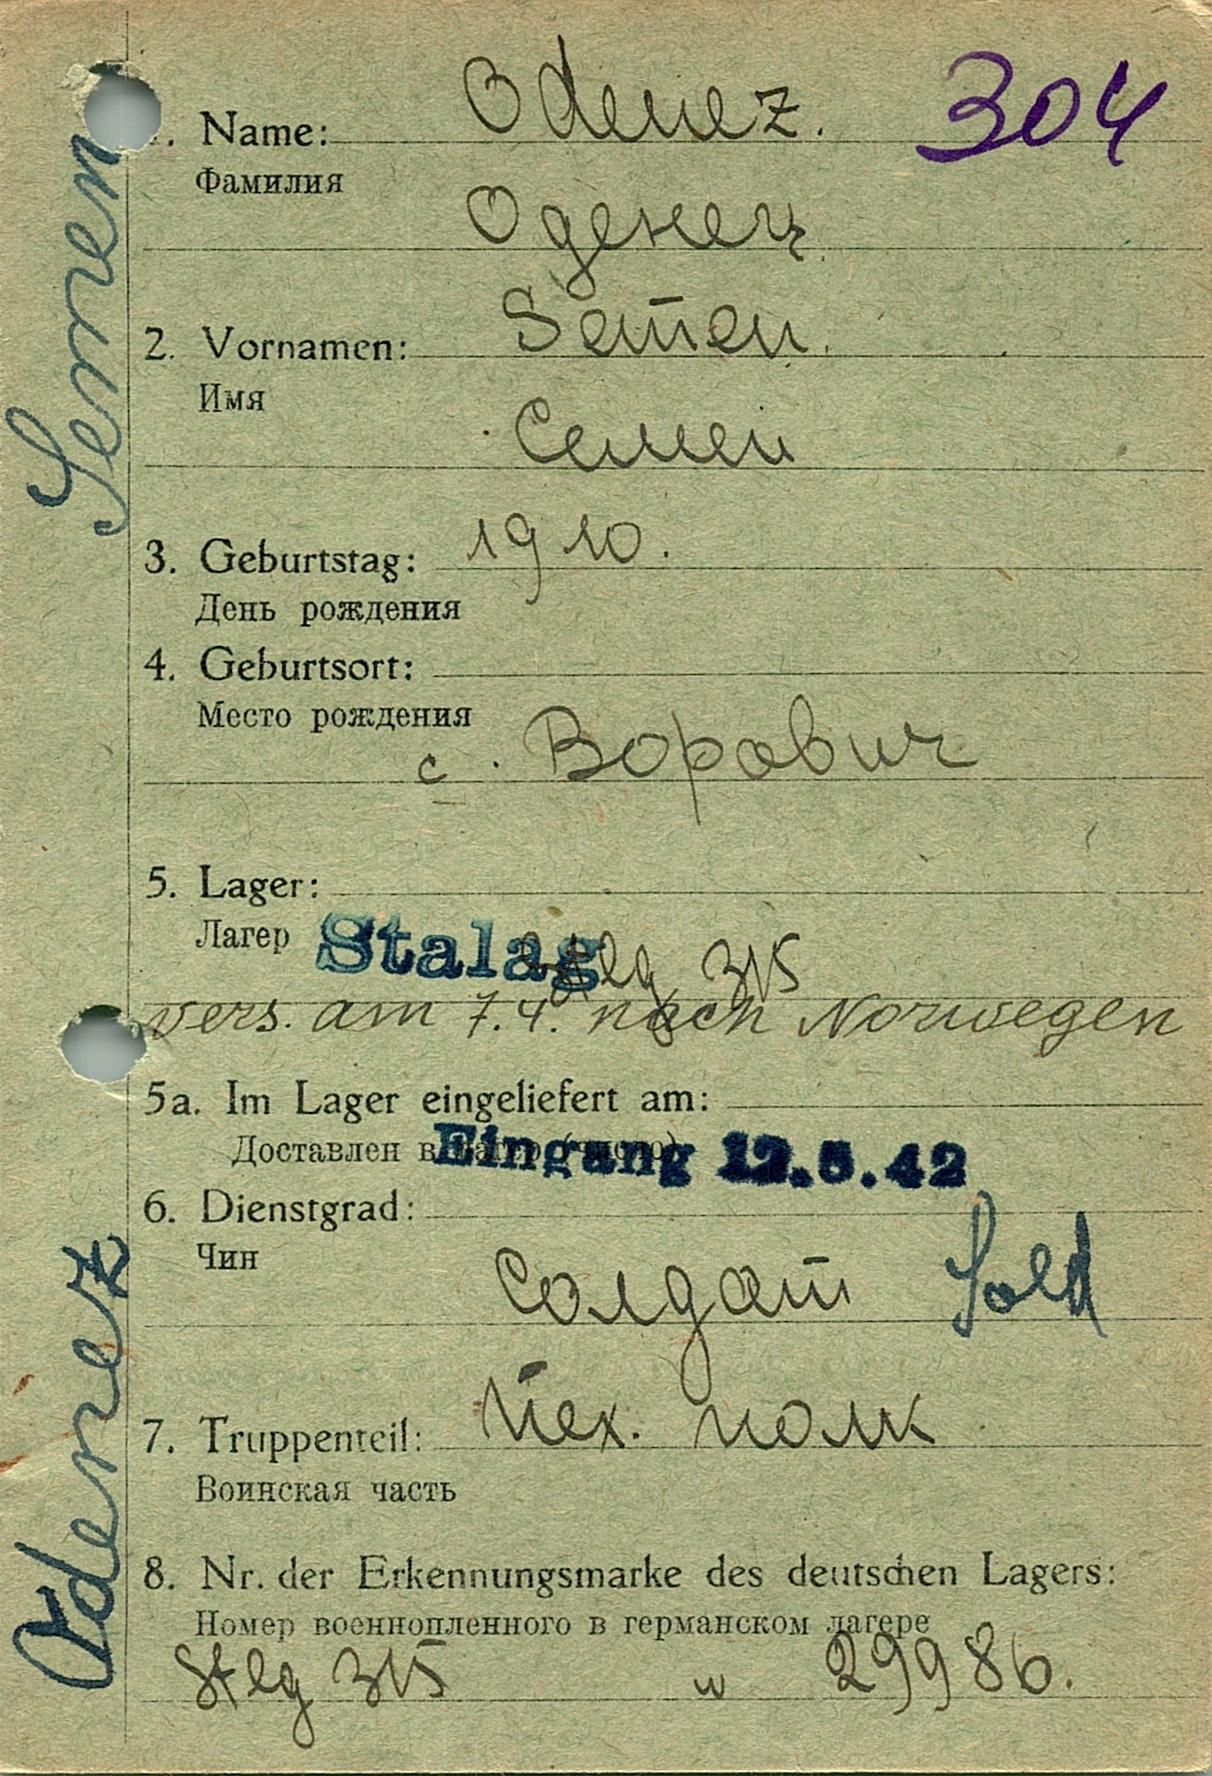 . Name: Odenez. 304
Фамилия
Оденец
2. Vornamen: Semen.
Имя
Семен
3. Geburtstag: 1910.
День рождения
4. Geburtsort:
Место рождения
с. Ворович
5. Lager:
Лагерь Stalag Stlg 315
vers. am 7.4. nach Norwegen
5a. Im Lager eingeliefert am:
Доставлен в лагерь (число) Eingang 12.5.42
6. Dienstgrad:
Чин
Солдат Sold
7. Truppenteil: Тех. полк
Воинская часть
8. Nr. der Erkennungsmarke des deutschen Lagers:
Номер военнопленного в германском лагере
Stlg 315 N 29986.
Odenez
Semen